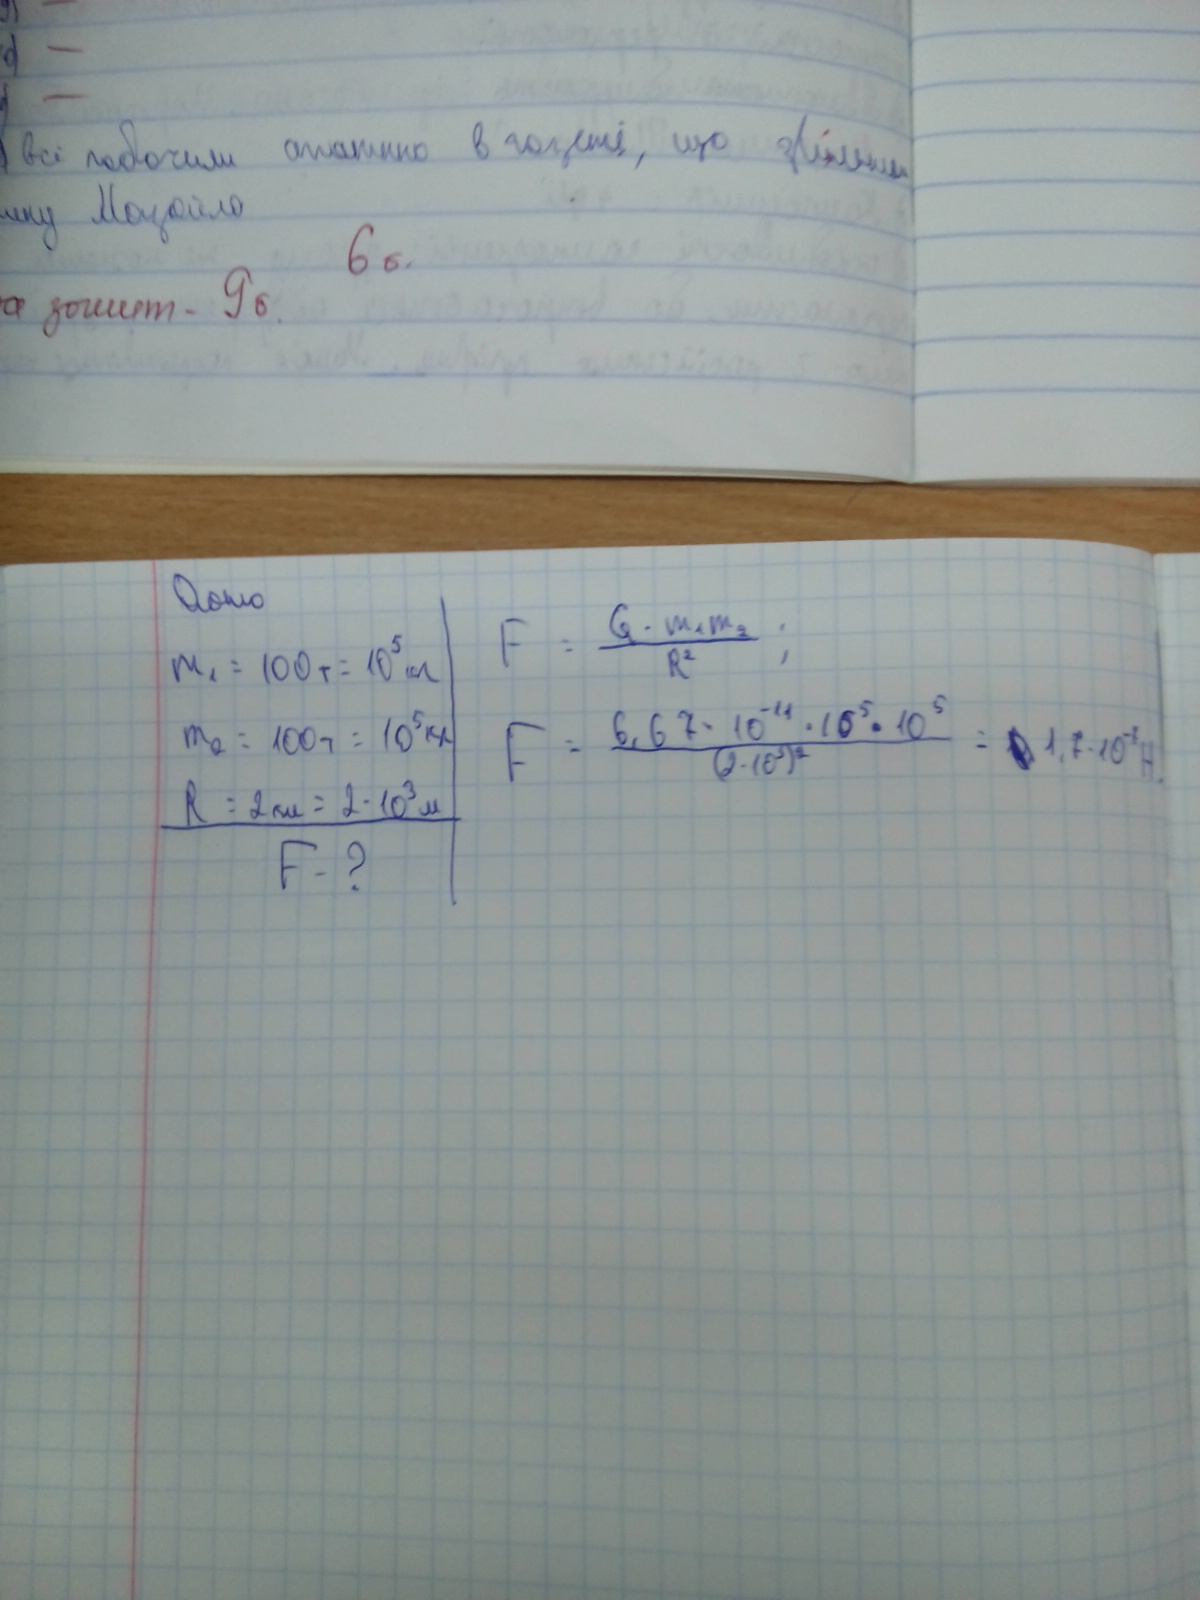 всі побачили в газеті, що
Мазайло
6 б.
за зошит - 9 б.
Дано
m₁ = 100т = 10⁵ кг
m₂ = 100т = 10⁵ кг
R = 2 км = 2 · 10³ м
F - ?
F = G · m₁m₂ / R² ;
F = 6,67 · 10⁻¹¹ · 10⁵ · 10⁵ / (2 · 10³)² = 1,7 · 10⁻⁷ Н.